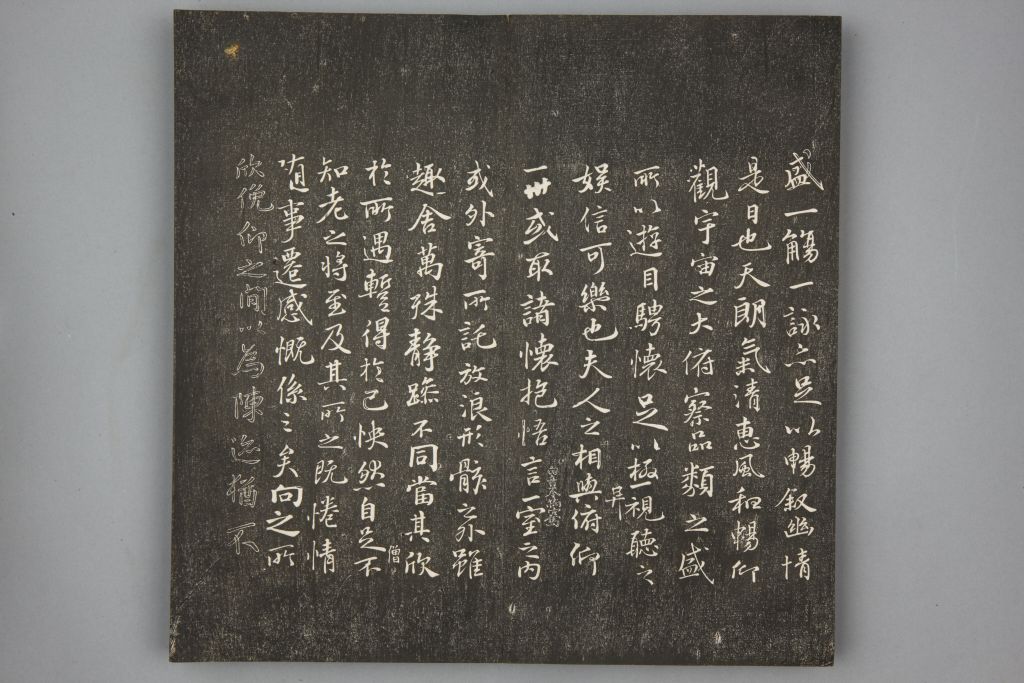 盛一觴一詠亦足以暢叙幽情
是日也天朗氣清惠風和暢仰
觀宇宙之大俯察品類之盛
所以遊目騁懷足以極視聽之
娛信可樂也夫人之相與俯仰
一世或取諸懷抱悟言一室之内
或外寄所託放浪形骸之外雖
趣舍萬殊静躁不同當其欣
僧
於所遇暫得於己怏然自足不
知老之將至及其所之既惓情
随事遷感慨係之矣向之所
欣俛仰之間以為陳迹猶不